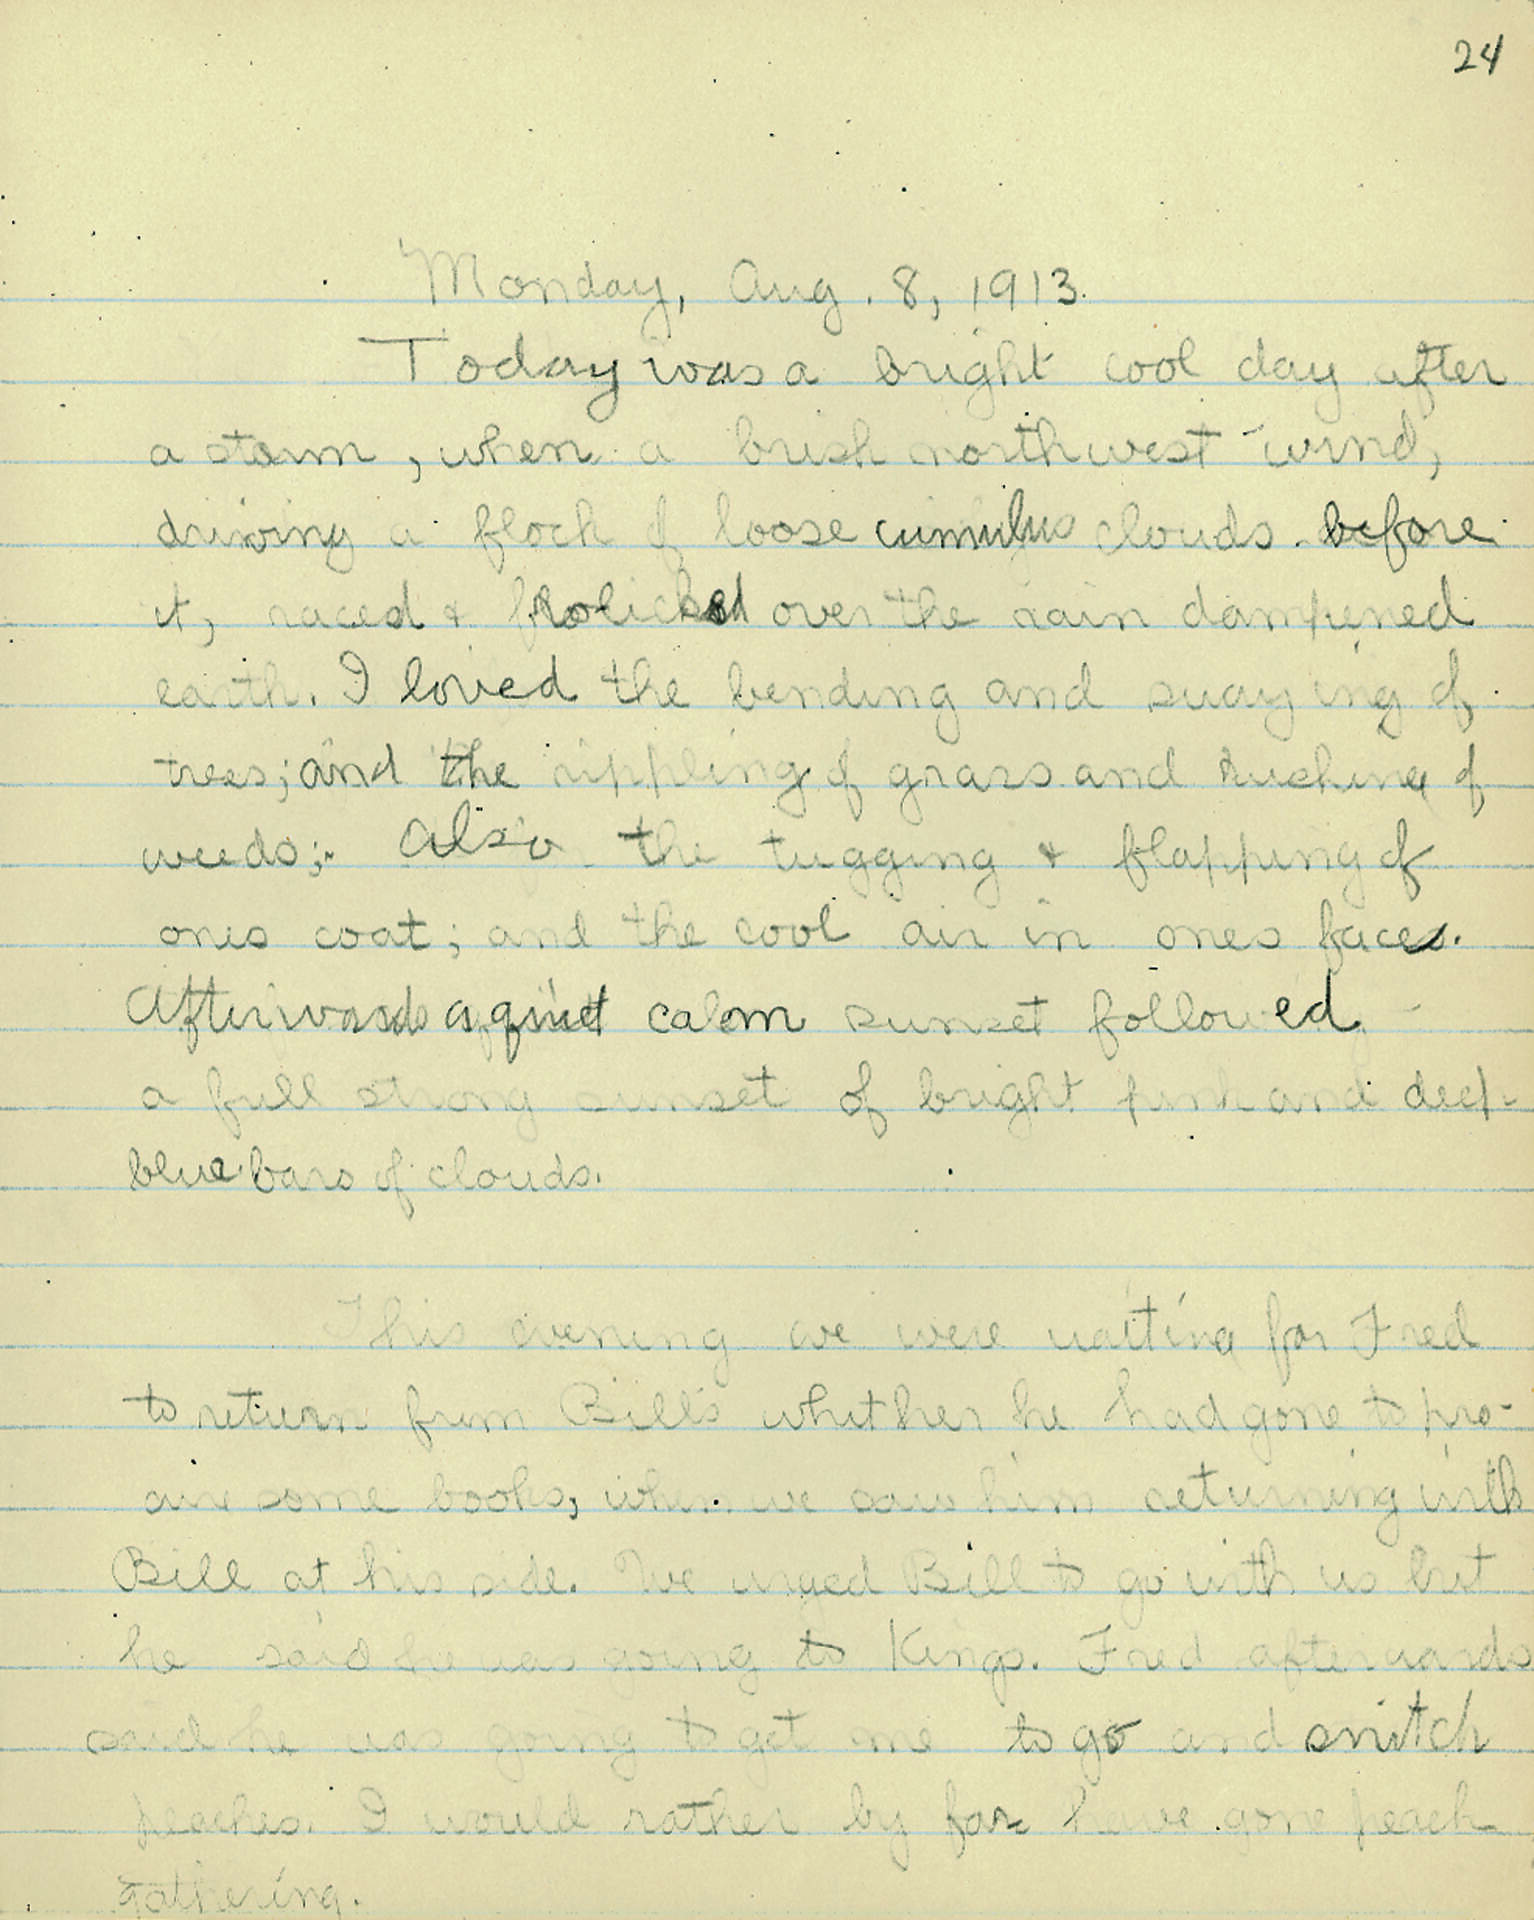 24
Monday, Aug. 8, 1913.
Today was a bright cool day after
a storm, when a brisk northwest wind,
driving a flock of loose cumulus clouds before
it, raced & frolicked over the rain dampened
earth. I loved the bending and swaying of
trees; and the rippling of grass and rushing of
weeds; Also the tugging & flapping of
ones coat; and the cool air in ones face.
Afterwards a quiet calm sunset followed
a full strong sunset of bright pink and deep
blue bars of clouds.
This evening we were waiting for Fred
to return from Bill's whither he had gone to pro-
cure some books, when we saw him returning with
Bill at his side. We urged Bill to go with us but
he said he was going to Kings. Fred afterwards
said he was going to get me to go and snitch
peaches. I would rather by far have gone peach
gathering.